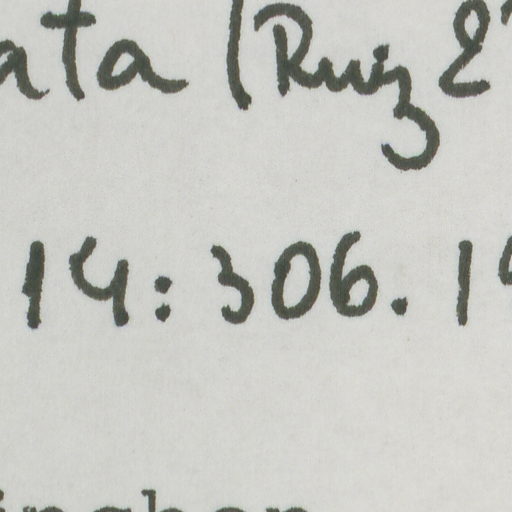 ata (Ruiz &
14: 306. 19